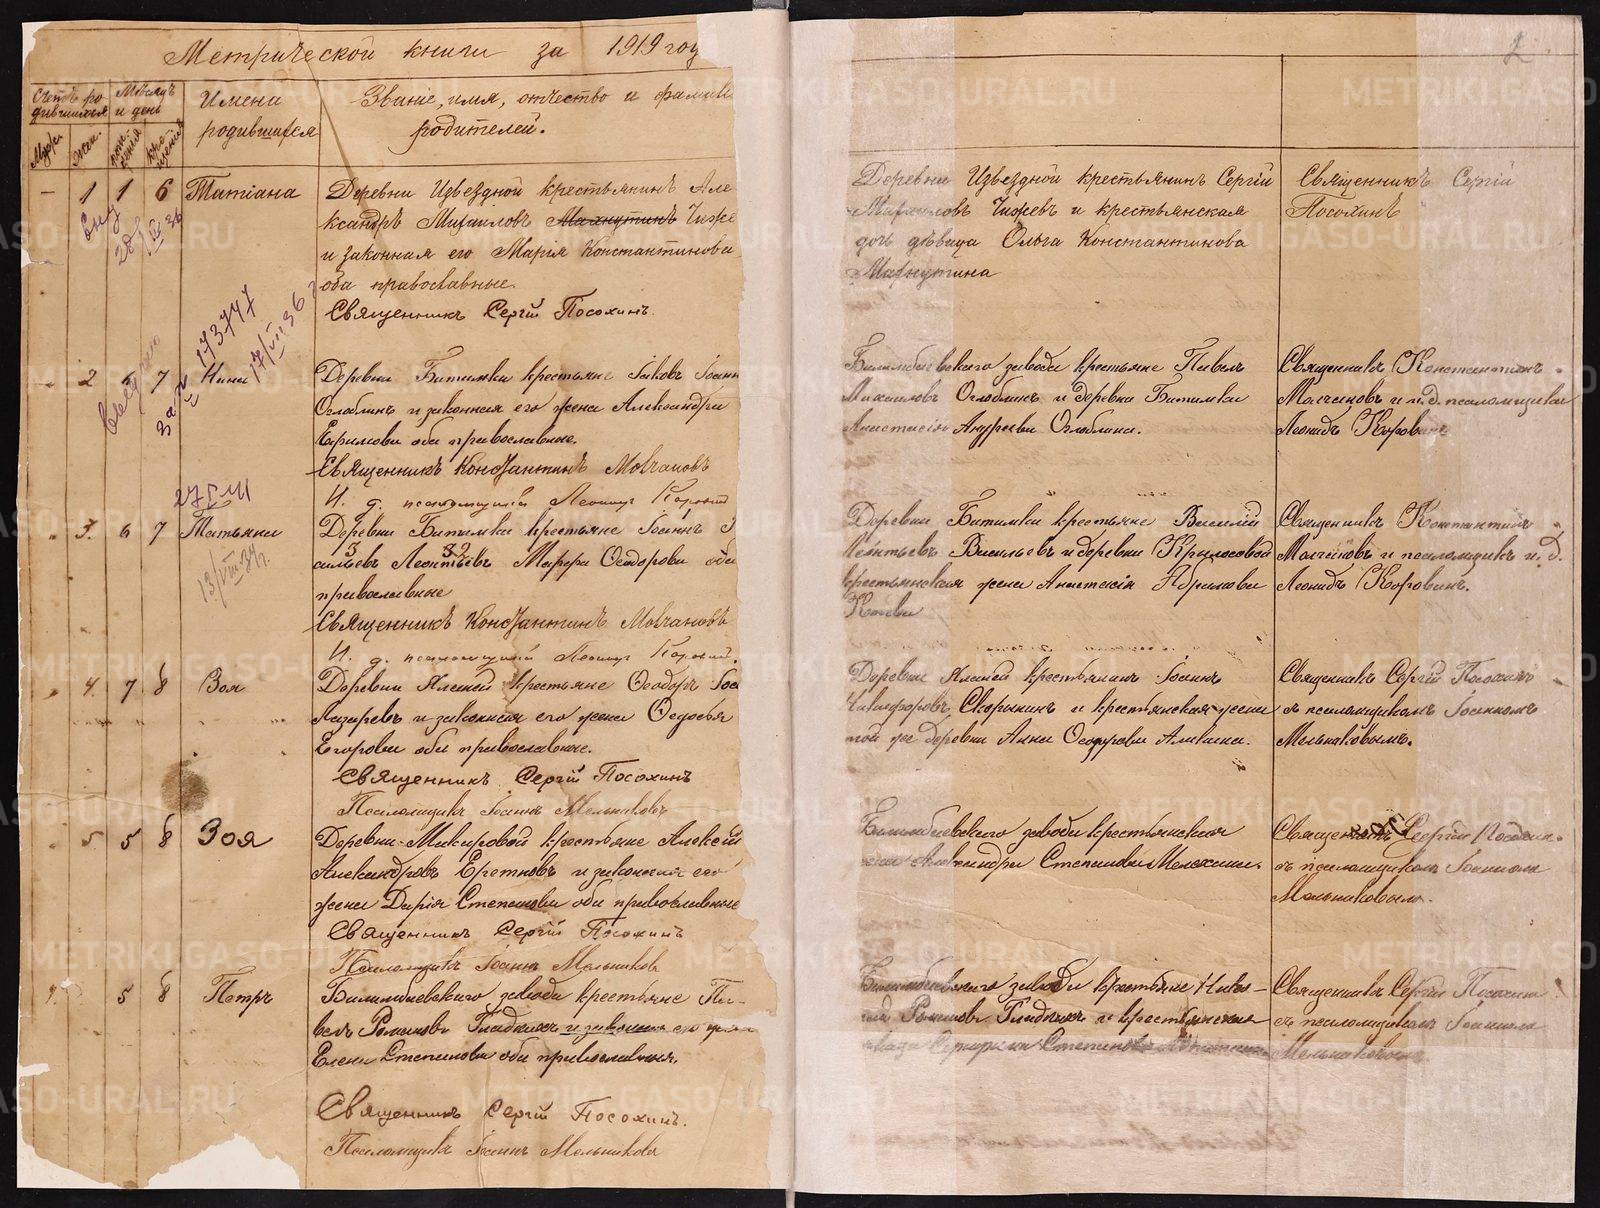 Метрической книги за 1919 год
Счетъ родившихся
Мѣсяцъ и день
Имена родившихся
Званіе, имя, отчество и фамил
родителей.
Муж.
Жен.
рождения
крещения
1 1 6 Татіана
Деревни Извездной крестьянинъ Але
ксандръ Михаиловъ Махнутинъ Чиже
и законная его Марія Константинова
оба православные.
Священникъ Сергій Посохинъ.
173747
17/VII 36
2 7 Нина
Деревни Битимки крестьяне Іаковъ Іоанн
Оглоблинъ и законная его жена Александра
Ефимова оба православные.
Священникъ Константинъ Молчановъ
И. д. псаломщика Леонидъ
3. 6 7 Татьяна
Деревни Битимки крестьяне Іоаннъ
Леонтьевъ Ѳеодорова оба
православные
Священникъ Константинъ Молчановъ
И. д. псаломщика Леонидъ
4. 7 8 Зоя
Деревни крестьяне Ѳеодоръ
Лазаревъ и законная его жена Ѳедосья
Егорова оба православные.
Священникъ Сергій Посохинъ
Псаломщикъ Іоаннъ Мельниковъ
5 5 8 Зоя
Деревни Макаровой крестьяне Алексѣй
Александровъ и законная его
жена Дарія Степанова оба православные
Священникъ Сергій Посохинъ
Псаломщикъ Іоаннъ Мельниковъ
5 8 Петръ
Билимбаевскаго завода крестьяне Па-
велъ Романовъ Гладкихъ и законная его жена
Елена Степанова оба православныя.
Священникъ Сергій Посохинъ.
Псаломщикъ Іоаннъ Мельниковъ
2
Деревни Извездной крестьянинъ Сергій
Михаиловъ Чижевъ и крестьянская
дочь дѣвица Ольга Константинова
Махнутина
Священникъ Сергій
Посохинъ
Билимбаевскаго завода крестьяне Павелъ
Михаиловъ Оглоблинъ и деревни Битимки
Анастасія Андреева Оглоблина.
Священникъ Константинъ
Молчановъ и и.д. псаломщика
Леонидъ
Деревни Битимки крестьяне Василій
Леонтьевъ Васильевъ и деревни Крылосовой
крестьянская жена Анастасія Абрамова
Священникъ Константинъ
Молчановъ и псаломщикъ и. д.
Леонидъ
Деревни крестьянинъ Іоаннъ
Никифоровъ Скорынинъ и крестьянская жена
той же деревни Анна Ѳеодорова
Священникъ Сергій Посохинъ
съ псаломщикомъ Іоанномъ
Мельниковымъ.
Билимбаевскаго завода крестьянская
жена Александра Степанова
Священникъ Сергій Посохин
съ псаломщикомъ Іоанномъ
Мельниковымъ.
Билимбаевскаго завода крестьяне Нико-
лай Романовъ Гладкихъ и крестьянская
Степанова
Священникъ Сергій Посохинъ
съ псаломщикомъ Іоанномъ
Мельниковымъ
METRIKI.GASO-URAL.RU